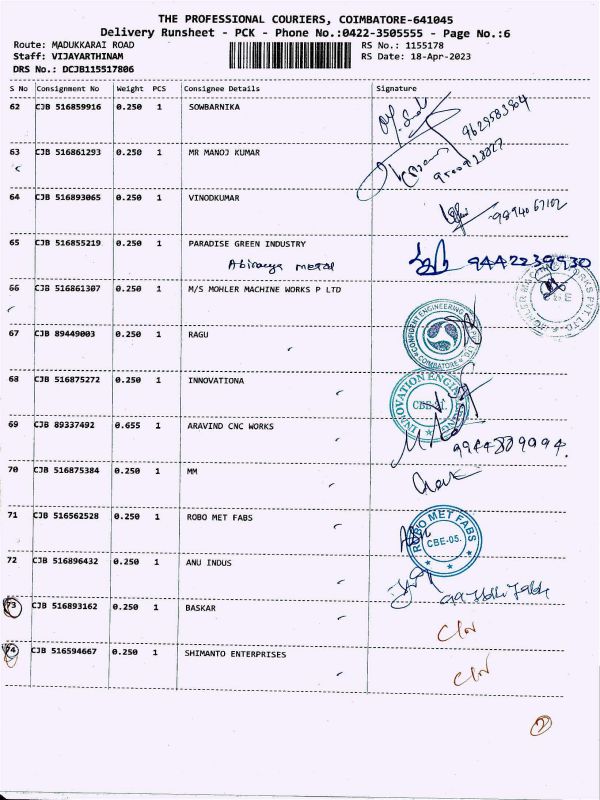 THE PROFESSIONAL COURIERS, COIMBATORE-641045
Delivery Runsheet - PCK - Phone No.:0422-3505555 - Page No.:6
Route: MADUKKARAI ROAD RS No.: 1155178
Staff: VIJAYARTHINAM RS Date: 18-Apr-2023
DRS No.: DCJB115517806
S No Consignment No Weight PCS Consignee Details Signature
62 CJB 516859916 0.250 1 SOWBARNIKA
9629583904
63 CJB 516861293 0.250 1 MR MANOJ KUMAR
64 CJB 516893065 0.250 1 VINODKUMAR
9894067102
65 CJB 516855219 0.250 1 PARADISE GREEN INDUSTRY
Abiranya metal 9442239930
66 CJB 516861307 0.250 1 M/S MOHLER MACHINE WORKS P LTD
MOHLER MACHINE WORKS PVT. LTD.
67 CJB 89449003 0.250 1 RAGU
CONFIDENT ENGINEERING
COIMBATORE
68 CJB 516875272 0.250 1 INNOVATIONA
INNOVATION ENGINEERING
CBE-21
69 CJB 89337492 0.655 1 ARAVIND CNC WORKS
9944809994.
70 CJB 516875384 0.250 1 MM
71 CJB 516562528 0.250 1 ROBO MET FABS
ROBO MET FABS
CBE-05.
72 CJB 516896432 0.250 1 ANU INDUS
73 CJB 516893162 0.250 1 BASKAR
74 CJB 516594667 0.250 1 SHIMANTO ENTERPRISES
2